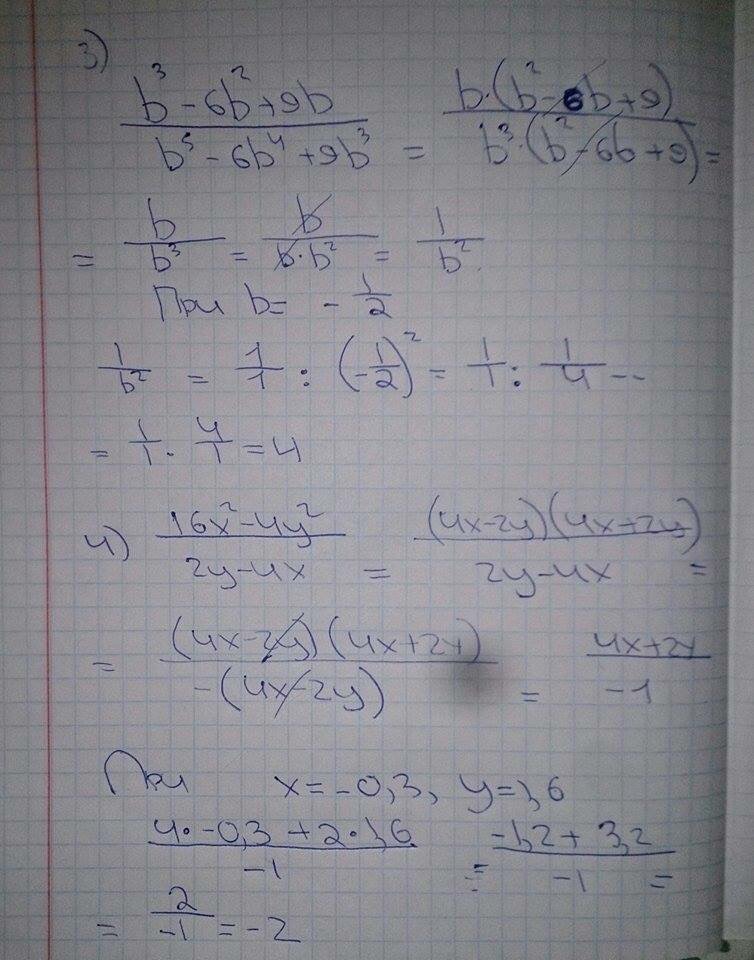 3)
(b³ - 6b² + 9b)/(b⁵ - 6b⁴ + 9b³) = (b·(b² - 6b + 9))/(b³·(b² - 6b + 9)) =
= b/b³ = b/(b·b²) = 1/b²
При b = - 1/2
1/b² = 1/1 : (-1/2)² = 1/1 : 1/4 =
= 1/1 · 4/1 = 4
4) (16x² - 4y²)/(2y - 4x) = ((4x - 2y)(4x + 2y))/(2y - 4x) =
= ((4x - 2y)(4x + 2y))/(-(4x - 2y)) = (4x + 2y)/(-1)
При x = -0,3, y = 1,6
(4· -0,3 + 2·1,6)/(-1) = (-1,2 + 3,2)/(-1) =
= 2/(-1) = -2